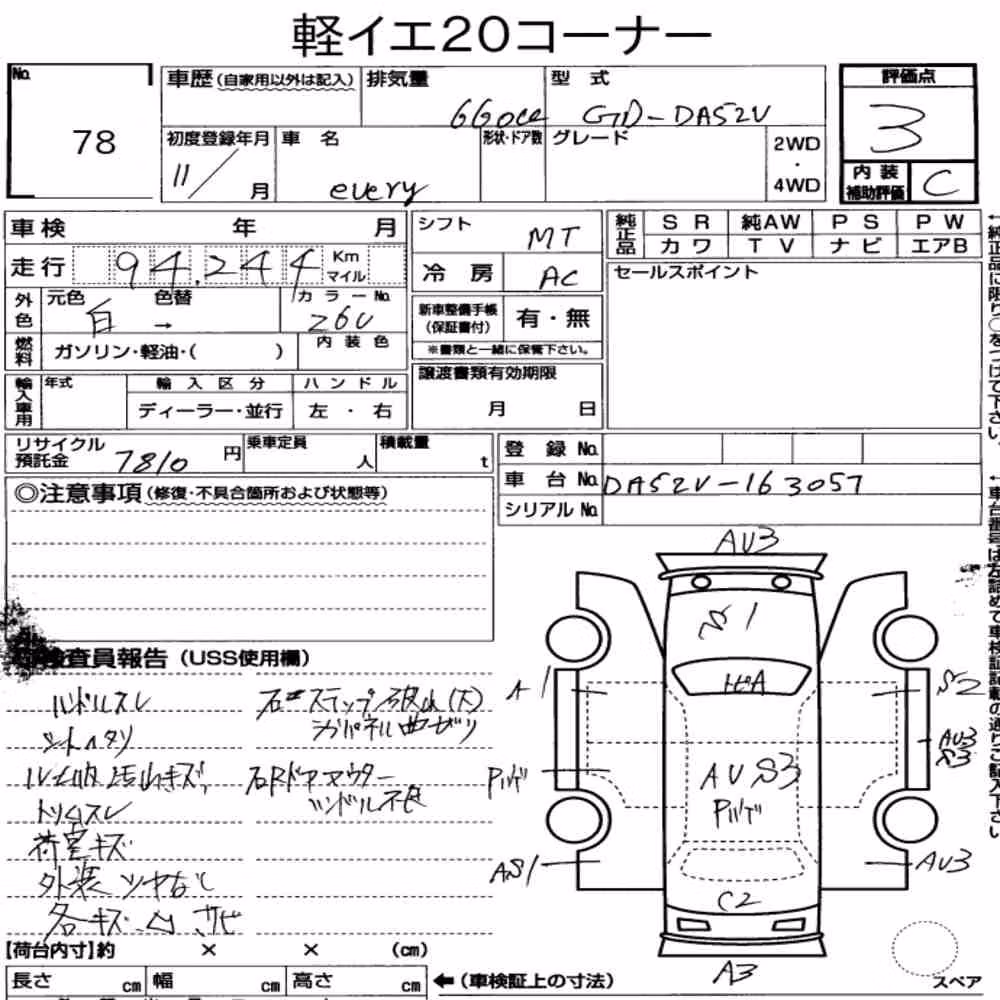 軽イエ20コーナー
No. 78
車歴(自家用以外は記入) 排気量 660cc 型式 GD-DA52V 評価点 3
初度登録年月 11/ 月 車名 every 形状・ドア数 グレード 2WD・4WD 内装補助評価 C
車検 年 月 シフト MT 純正品 SR 純AW PS PW
カワ TV ナビ エアB
走行 94,244 Km マイル 冷房 AC セールスポイント
外色 元色 白 色替 → カラーNo. 26U 新車整備手帳(保証書付) 有・無
※書類と一緒に保管下さい。
燃料 ガソリン・軽油・( ) 内装色
譲渡書類有効期限 月 日
輸入車用 年式 輸入区分 ハンドル
ディーラー・並行 左・右
リサイクル預託金 7810円 乗車定員 人 積載量 t 登録No.
車台No. DA52V-163057
シリアルNo.
◎注意事項(修復・不具合箇所および状態等)
←純正品に限り○をつけて下さい。
←車台番号は左詰めで車検証記載の通りご記入下さい
検査員報告(USS使用欄)
ハンドルスレ
シートヘタリ
トリムスレ
荷室キズ
外装ツヤなし
各キズ凹サビ
右ドアアウター
AU3
S1
A1
S2
AU3
S3
AUS3
AS1
AU3
C2
A3
スペア
【荷台内寸】約 × × (cm)
長さ cm 幅 cm 高さ cm ←(車検証上の寸法)